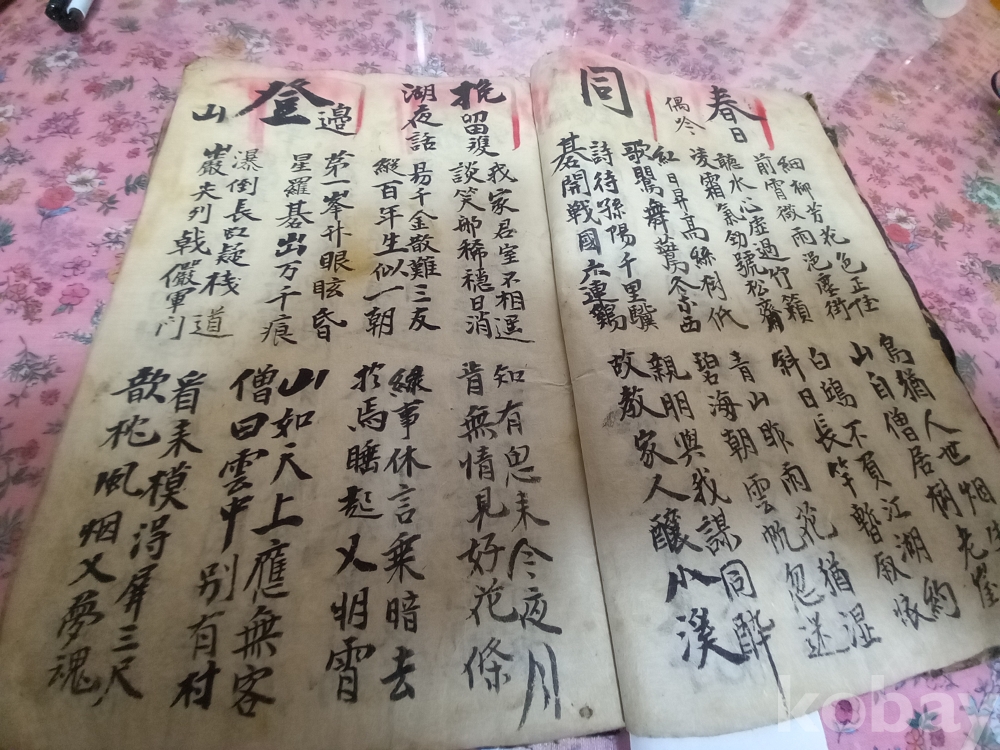 春日
偶吟
同
細柳芳花色正佳
前宵微雨浥塵街
聽水心虛過竹籟
凌霜氣勁號松齋
紅日昇高絲樹低
歌鶯舞蝶各東西
詩待孫陽千里驥
碁開戰國六連鷄
鳥猶人世烟
山自僧居樹老崖
白鷗不負江湖約
斜日長竿暫寂懷
青山昨雨花猶湿
碧海朝雲帆忽迷
親朋與我謀同醉
故教家人釀小溪
挽留護
湖夜話
登邊山
我家君室不相遥
談笑那稀穩日消
易千金散難三友
縱百年生似一朝
第一峯升眼眩昏
星羅碁出万千痕
瀑倒長虹疑棧道
巖夾列戟儼軍门
知有思来今夜月
肯無情見好花條
緣事休言乘暗去
於焉睡起又明宵
山如天上應無客
僧曰雲中別有村
看来模得屏三尺
歆枕風烟又夢魂
kobay